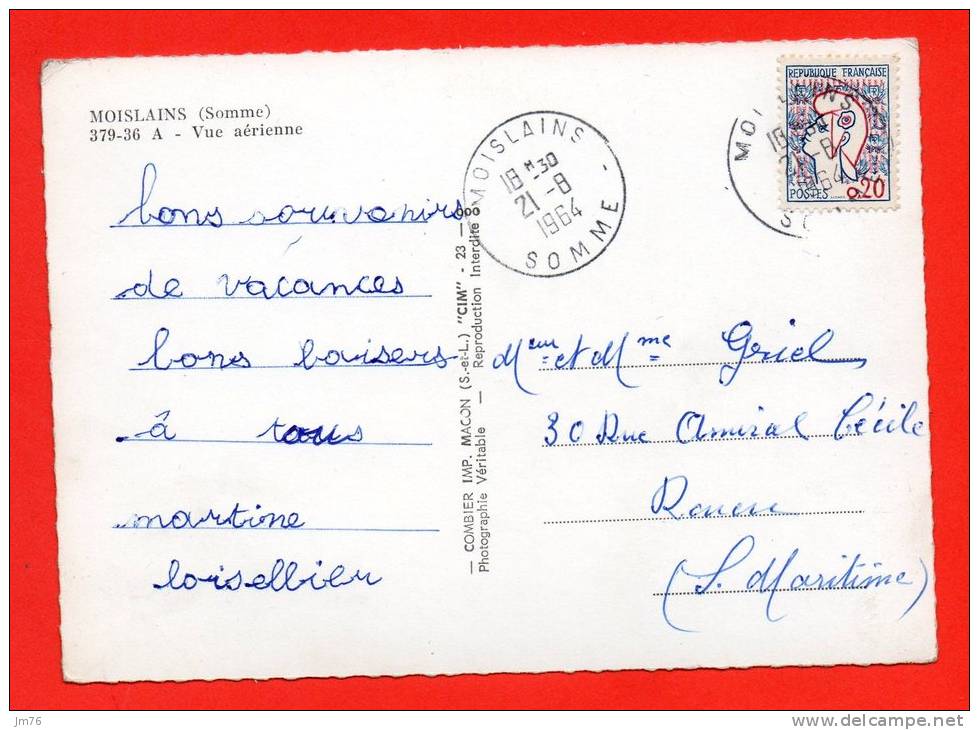 MOISLAINS (Somme)
379-36 A - Vue aérienne
bons souvenirs
de vacances
bons baisers
â tous
martine
loisellier
— COMBIER IMP. MACON (S.-et-L.) "CIM" - 23 —
Photographie Véritable — Reproduction Interdite
MOISLAINS - SOMME
18 H 30
21 - 8
1964
REPUBLIQUE FRANÇAISE
POSTES
0,20
MOISLAINS
18 H 30
21 - 8
1964
SOMME
Meur et Mme Geriel
30 Rue Amiral Cécile
Rouen
(S. Maritime)
jm76
www.delcampe.net